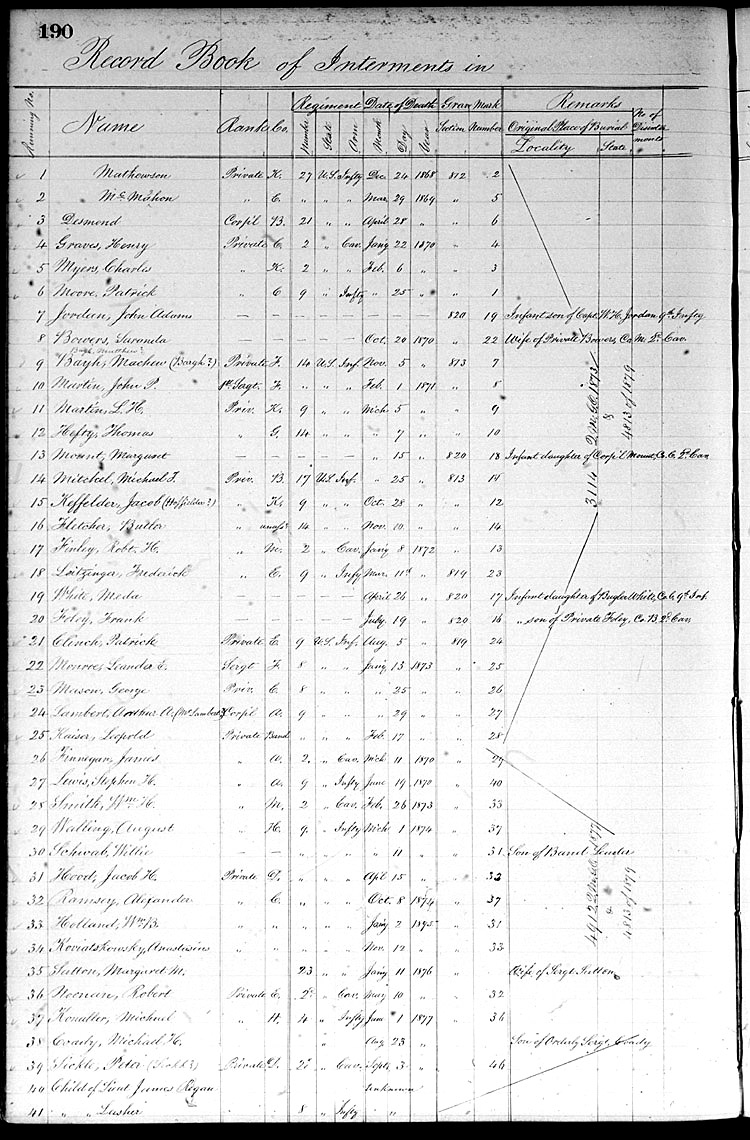 190
Record Book of Interments in
Running No. Name Rank Co. Regiment Date of Death Grave Mark Remarks
Number State Arm Month Day Year Section Number Original Place of Burial No. of Disinterments
Locality State
1 Mathowson Private K. 27 U.S. Infty Dec. 24 1868 812 2
2 McMahon " C. " " " Mar. 29 1869 " 5
3 Desmond Corp'l B. 21 " " April 28 " " 6
4 Graves, Henry Private C. 2 " Cav. Jan'y 22 1870 " 4
5 Myers, Charles " K. 2 " " Feb. 6 " " 3
6 Moore, Patrick " C 9 " Infty " 25 " " 1
7 Jordan, John Adams — — — — — — — — 820 19 Infant son of Capt. W.H. Jordan 9th Infty
8 Bowers, Suranda — — — — — Oct. 20 1870 " 22 Wife of Private Bowers Co. M. 2d Cav.
9 Bayh, Mathew (Bargh?) Private F. 14 U.S. Inf. Nov. 5 " 813 7
10 Martin, John P. 1st Sergt. F. " " " Feb. 1 1871 " 8
11 Martin, L. H. Priv. K. 9 " " Mch 5 " " 9
12 Hefty, Thomas " G. 14 " " " 7 " " 10
13 Mount, Margaret — — — — — " 15 " 820 18 Infant daughter of Corp'l Mount, Co. C. 2d Cav
14 Mitchel, Michael F. Priv. B. 17 U.S. Inf. " 25 " 813 11
15 Keffelder, Jacob (Hoffelder?) " K. 9 " " Oct. 28 " " 12
16 Fletcher, Butler " unass'd 14 " " Nov. 10 " " 14
17 Finley, Robt. H. " M. 2 " Cav. Jan'y 8 1872 " 13
18 Loitzinger, Frederick " E. 9 " Infty Mar. 11 " 819 23
19 White, Meda — — — — — April 26 " 820 17 Infant daughter of Bugler White, Co. C. 9th Inf.
20 Foley, Frank — — — — — July 19 " 820 16 " son of Private Foley, Co. B. 2d Cav
21 Clinch, Patrick Private E. 9 U.S. Inf. Aug. 5 " 819 24
22 Monroe, Leander E. Sergt F. 8 " " Jan'y 13 1873 " 25
23 Mason, George Priv. C. 8 " " " 25 " " 26
24 Lambert, Arthur A. (McLambert?) Corp'l A. 9 " " " 29 " " 27
25 Kaiser, Leopold Private Band " " " Feb. 17 " " 28
3114 2 M.G.O. 1873 & 4813 of 1879
26 Finnegan, James " A. 2. " Cav. Mch 11 1870 " 29
27 Lewis, Stephen H. " A. 9 " Infty June 19 1870 " 40
28 Smith, Wm. H. " M. 2 " Cav. Feb. 26 1873 " 33
29 Watling, August " H. 9. " Infty Mch 1 1874 " 37
30 Schwab, Willie — — " " " " 11 " 31 Son of Band Leader
31 Hood, Jacob H. Private D. " " " Apl 15 " " 32
32 Ramsey, Alexander " C. " " " Oct. 8 1874 " 37
33 Holland, Wm. B. " " " " " Jan'y 2 1875 " 31
34 Koviatskowsky, Anastasius " " " " " Nov. 12 " " 33
35 Sutton, Margaret M. 23 " " Jan'y 11 1876 " Wife of Sergt Sutton
36 Noonan, Robert Private E. 2d " Cav. May 10 " " 32
37 Kmuller, Michael " H. 4 " Infty June 1 1877 " 36
38 Coady, Michael H. " Aug 23 " Son of Orderly Sergt Coady
39 Sickle, Peter (Sickel?) Private D. 2d " Cav. Sept. 3 " " 46
40 Child of Lieut James Regan Unknown
41 " " Lusher 8 " Infty "
4813 of 1879